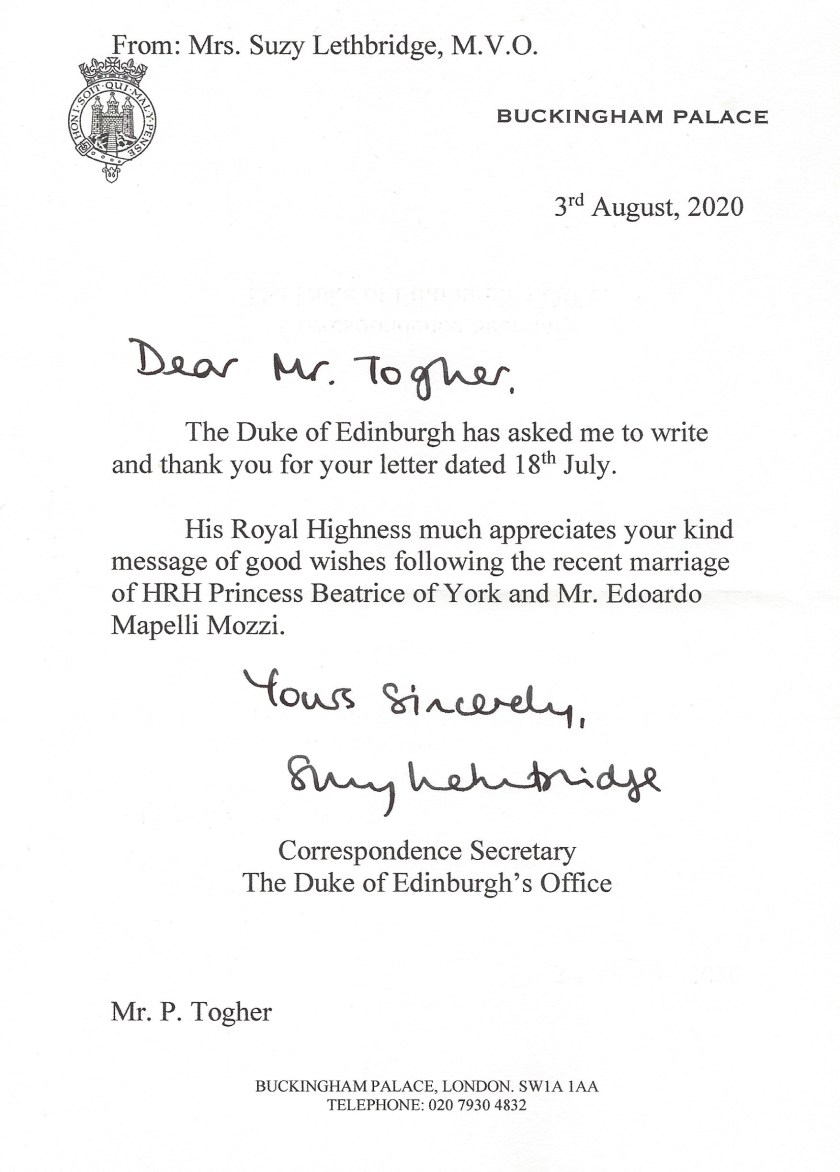 From: Mrs. Suzy Lethbridge, M.V.O.
HONI·SOIT·QUI·MAL·Y·PENSE
BUCKINGHAM PALACE
3rd August, 2020
Dear Mr. Togher,
The Duke of Edinburgh has asked me to write
and thank you for your letter dated 18th July.
His Royal Highness much appreciates your kind
message of good wishes following the recent marriage
of HRH Princess Beatrice of York and Mr. Edoardo
Mapelli Mozzi.
Yours Sincerely,
Suzy Lethbridge
Correspondence Secretary
The Duke of Edinburgh’s Office
Mr. P. Togher
BUCKINGHAM PALACE, LONDON. SW1A 1AA
TELEPHONE: 020 7930 4832